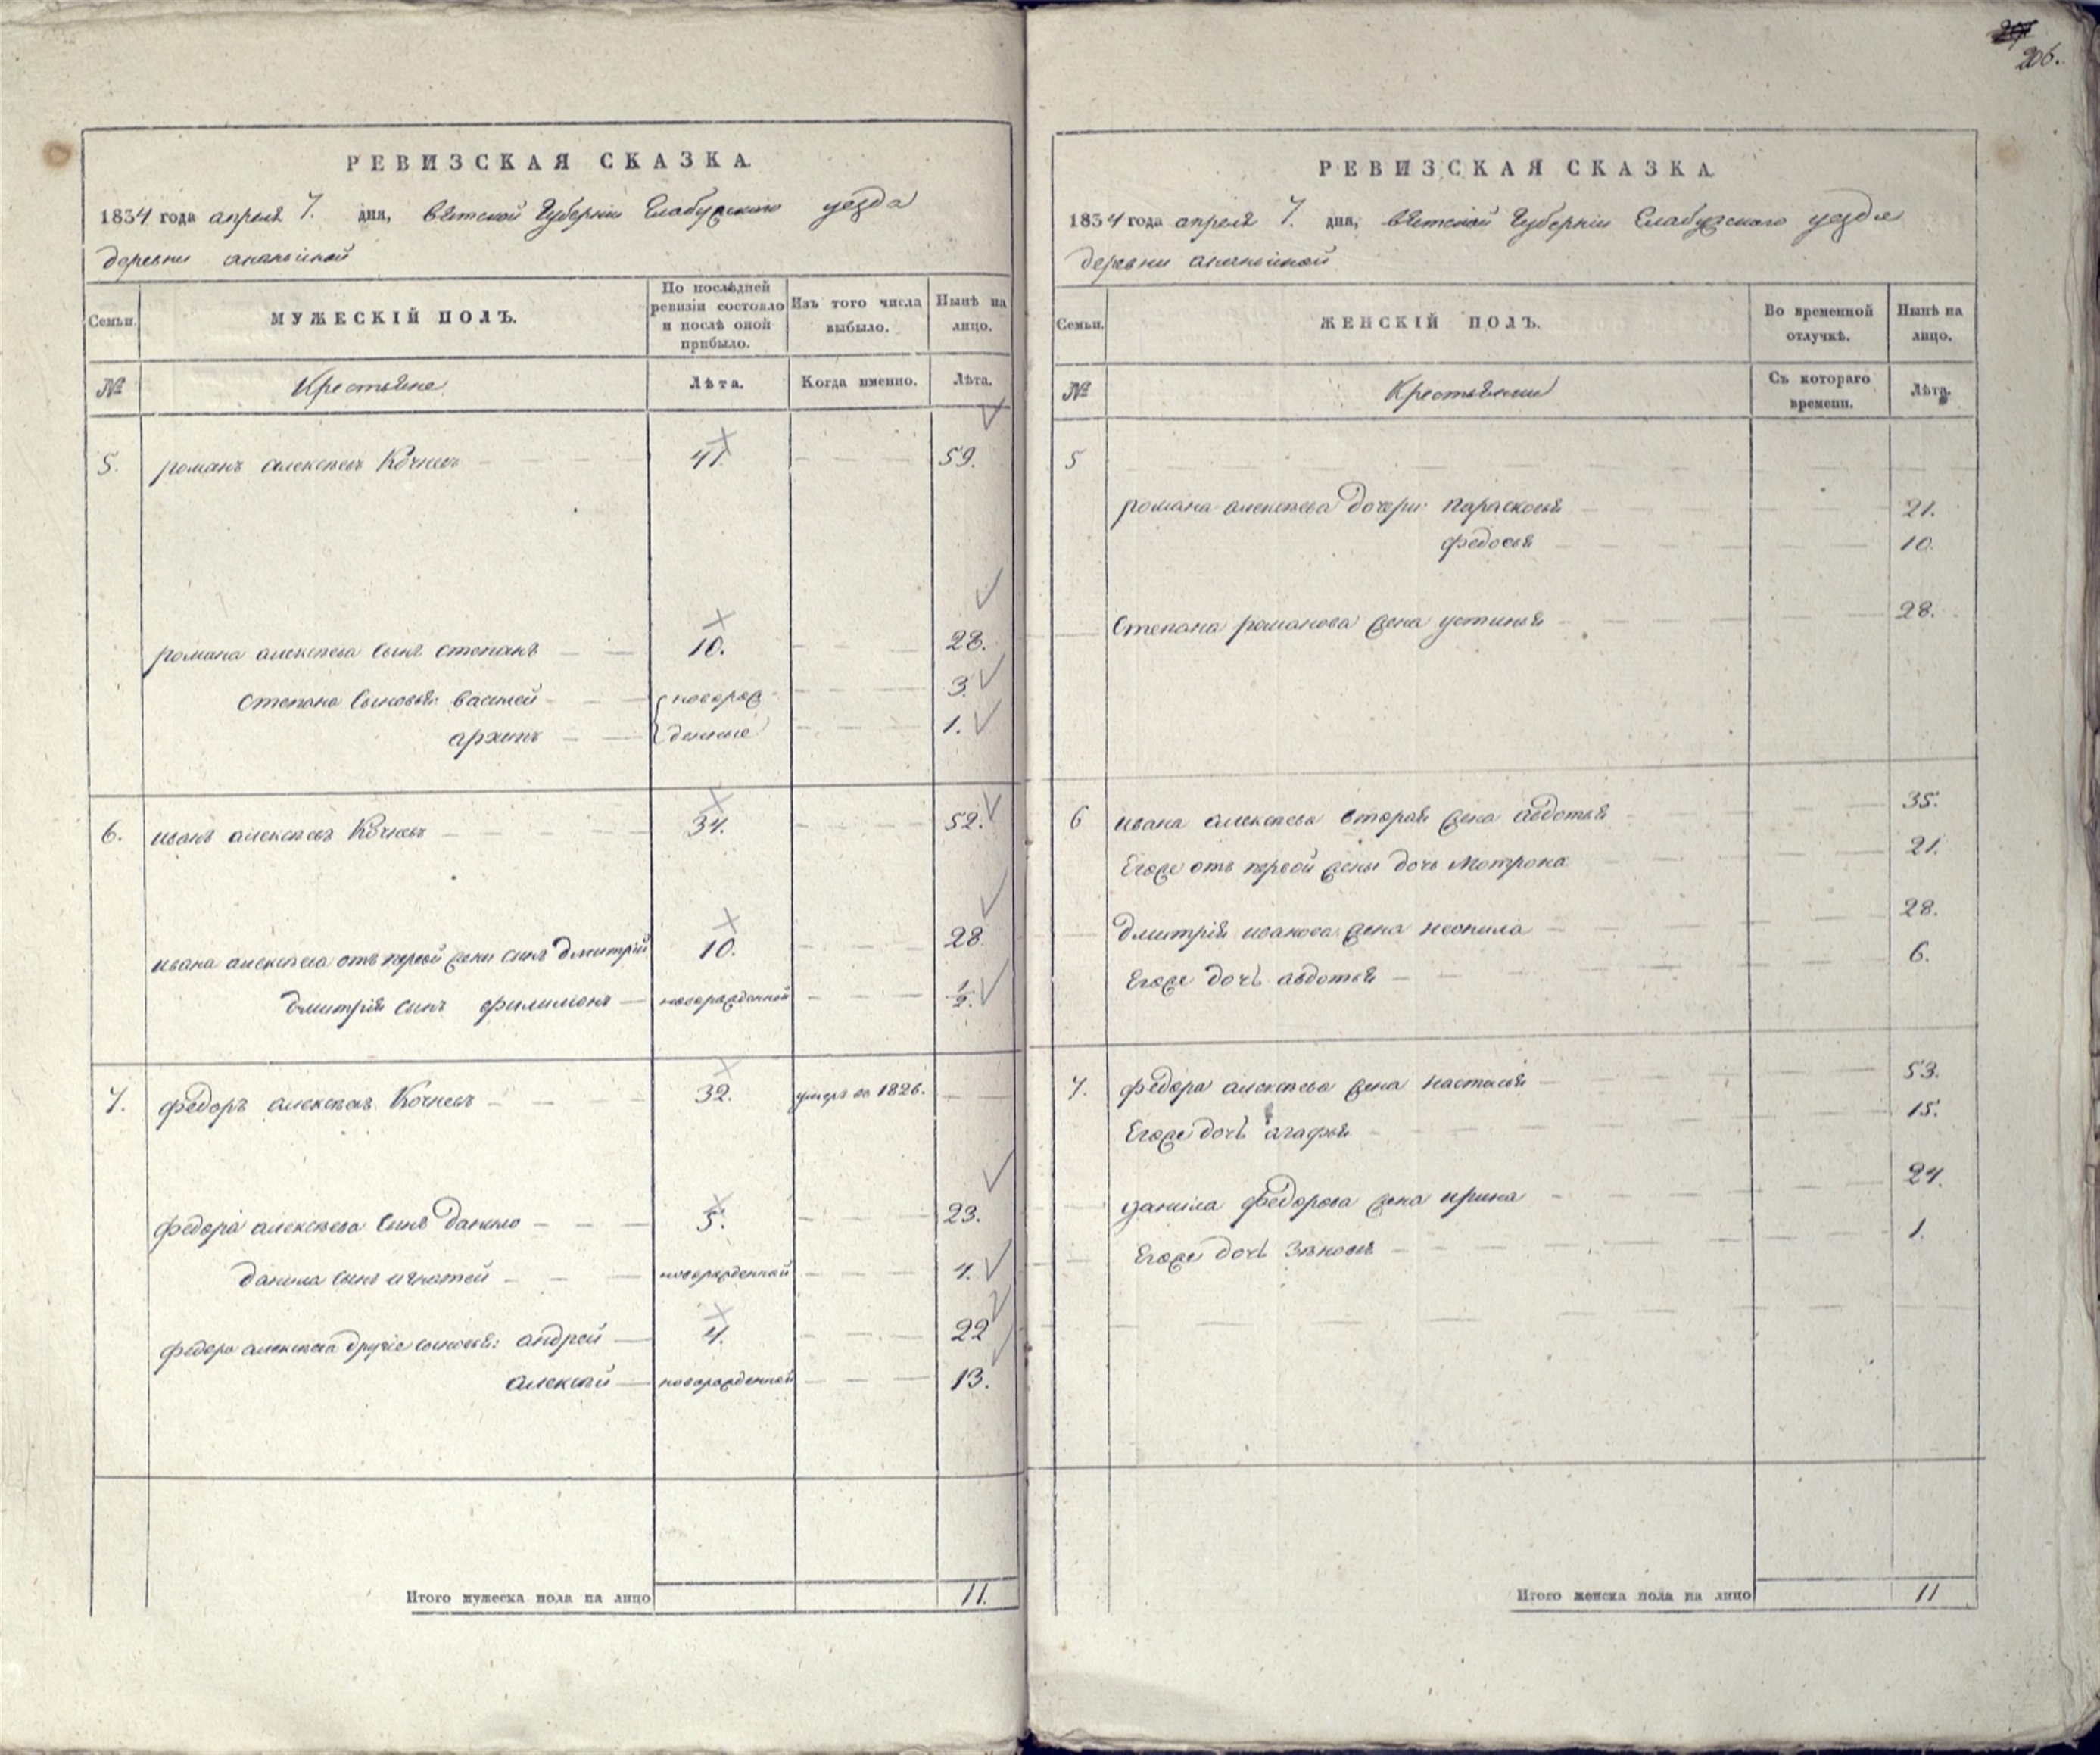 206.
РЕВИЗСКАЯ СКАЗКА.
1834 года апреля 7. дня, вятской Губернiи Елабужского уезда
деревни ананьиной
Семьи.
МУЖЕСКІЙ ПОЛЪ.
По послѣдней ревизіи состояло и послѣ оной прибыло.
Изъ того числа выбыло.
Нынѣ на лицо.
№
Крестьяне
Лѣта.
Когда именно.
Лѣта.
5. романъ алексѣевъ Кочневъ 41. 59.
романа алексѣева сынъ степанъ 10. 28.
степана сыновья: василей новорож- 3.
архипъ денные 1.
6. иванъ алексѣевъ Кочневъ 34. 52.
ивана алексѣева отъ первой жены сынъ дмитрій 10. 28
дмитрія сынъ филимонъ новорожденной 1/2.
7. федоръ алексѣевъ Кочневъ 32. умеръ въ 1826.
федора алексѣева сынъ данило 5. 23.
данила сынъ игнатей новорожденной 4.
федора алексѣева другіе сыновья: андрей 4. 22
алексѣй новорожденной 13.
Итого мужеска пола на лицо 11.
РЕВИЗСКАЯ СКАЗКА.
1834 года апреля 7. дня, вятской Губернiи Елабужского уезда
деревни ананьиной
Семьи.
ЖЕНСКІЙ ПОЛЪ.
Во временной отлучкѣ.
Нынѣ на лицо.
№
Крестьянки
Съ котораго времени.
Лѣта.
5
романа алексѣева дочери: парасковья 21.
федосья 10.
степана романова жена устинья 28.
6 ивана алексѣева вторая жена авдотья 35.
Егоже отъ первой жены дочь мотрона 21.
дмитрія иванова жена неонила 28.
Егоже дочь авдотья 6.
7. федора алексѣева жена настасья 53.
Егоже дочь агафья 15.
данила федорова жена ирина 24.
Егоже дочь 1.
Итого женска пола на лицо 11